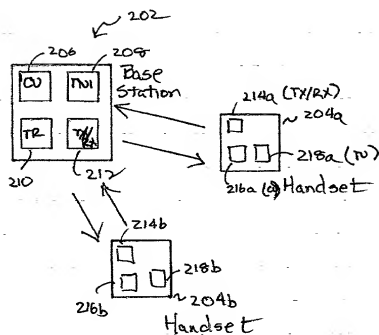 202
206
208
CU
MU
Base
Station
TR
TX/RX
210
212
214a (TX/RX)
204a
218a (TU)
216a (a) Handset
214b
218b
216b
204b
Handset